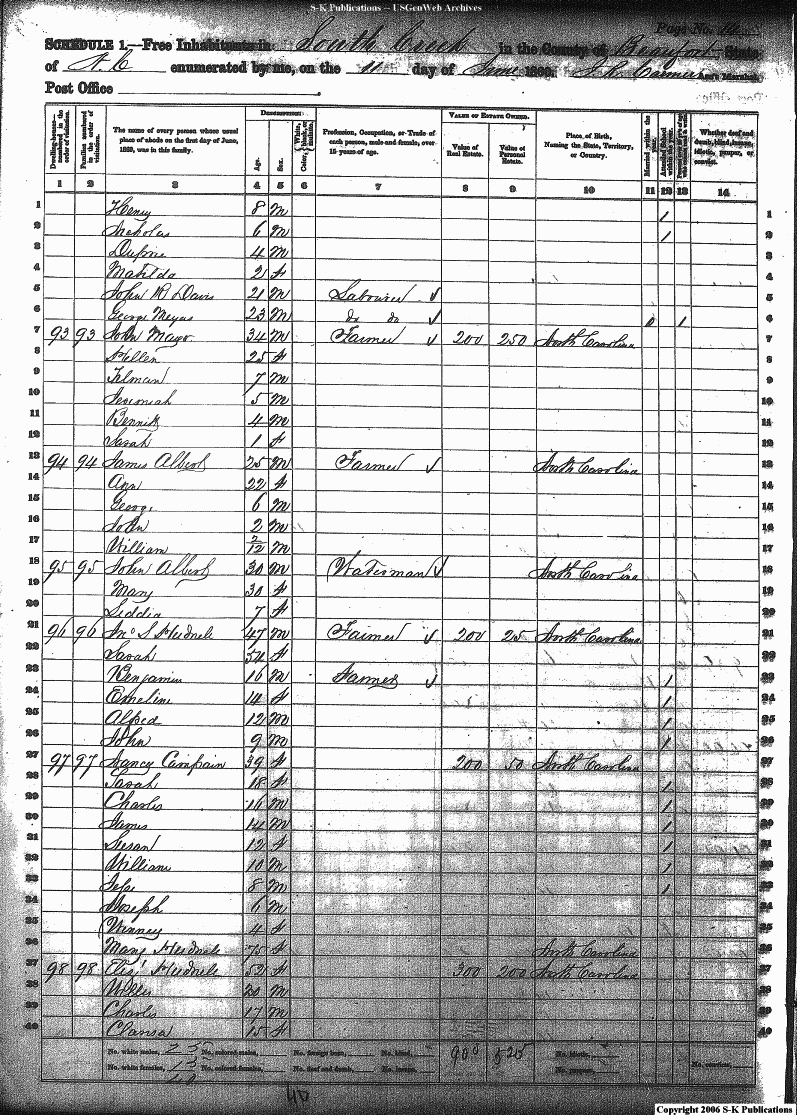 S-K Publications -- USGenWeb Archives
Page No.
SCHEDULE 1.—Free Inhabitants in South Creek in the County of Beaufort State
of N. C enumerated by me, on the 11 day of June 1860. Ass't Marshal.
Post Office
Dwelling-houses—numbered in the order of visitation.
Families numbered in the order of visitation.
The name of every person whose usual place of abode on the first day of June, 1860, was in this family.
DESCRIPTION.
Age.
Sex.
Color, White, black, or mulatto.
Profession, Occupation, or Trade of each person, male and female, over 15 years of age.
VALUE OF ESTATE OWNED.
Value of Real Estate.
Value of Personal Estate.
Place of Birth, Naming the State, Territory, or Country.
Married within the year.
Attended School within the year.
Whether deaf and dumb, blind, insane, idiotic, pauper, or convict.
1 2 3 4 5 6 7 8 9 10 11 12 13 14
1 Henry 8 m / 1
2 Nicholas 6 m / 2
3 4 m 3
4 Matilda 2 f 4
5 John R Davis 21 m Labourer 5
6 George Meyas 23 m do do / 6
7 93 93 John Mayo 34 m Farmer 200 250 North Carolina 7
8 Hellen 25 f 8
9 Tilman 7 m 9
10 Jeremiah 5 m 10
11 4 m 11
12 Sarah 1 f 12
13 94 94 James Albert 25 m Farmer North Carolina 13
14 Ann 22 f 14
15 George 6 m 15
16 John 2 m 16
17 William 2/12 m 17
18 95 95 John Albert 30 m Waterman North Carolina 18
19 Mary 30 f 19
20 Liddia 7 f 20
21 96 96 Jno S 47 m Farmer 200 25 North Carolina 21
22 Sarah 54 f 22
23 Benjamin 16 m Farmer / 23
24 Emeline 14 f / 24
25 Alfred 12 m / 25
26 John 9 m / 26
27 97 97 Nancy Campain 39 f 200 50 North Carolina 27
28 Sarah 18 f / 28
29 Charles 16 m / 29
30 James 14 m / 30
31 Susan 12 f / 31
32 William 10 m / 32
33 Jesse 8 m / 33
34 Joseph 6 m 34
35 4 f 35
36 Mary 75 f North Carolina 36
37 98 98 Eliz' 52 f 300 200 North Carolina 37
38 Willis 20 m 38
39 Charles 17 m 39
40 Clarisa 15 f 40
No. white males, No. colored males, No. foreign born, No. blind, 900 525 No. idiotic,
No. white females, No. colored females, No. deaf and dumb, No. insane, No. paupers, No. convicts,
40
Copyright 2006 S-K Publications